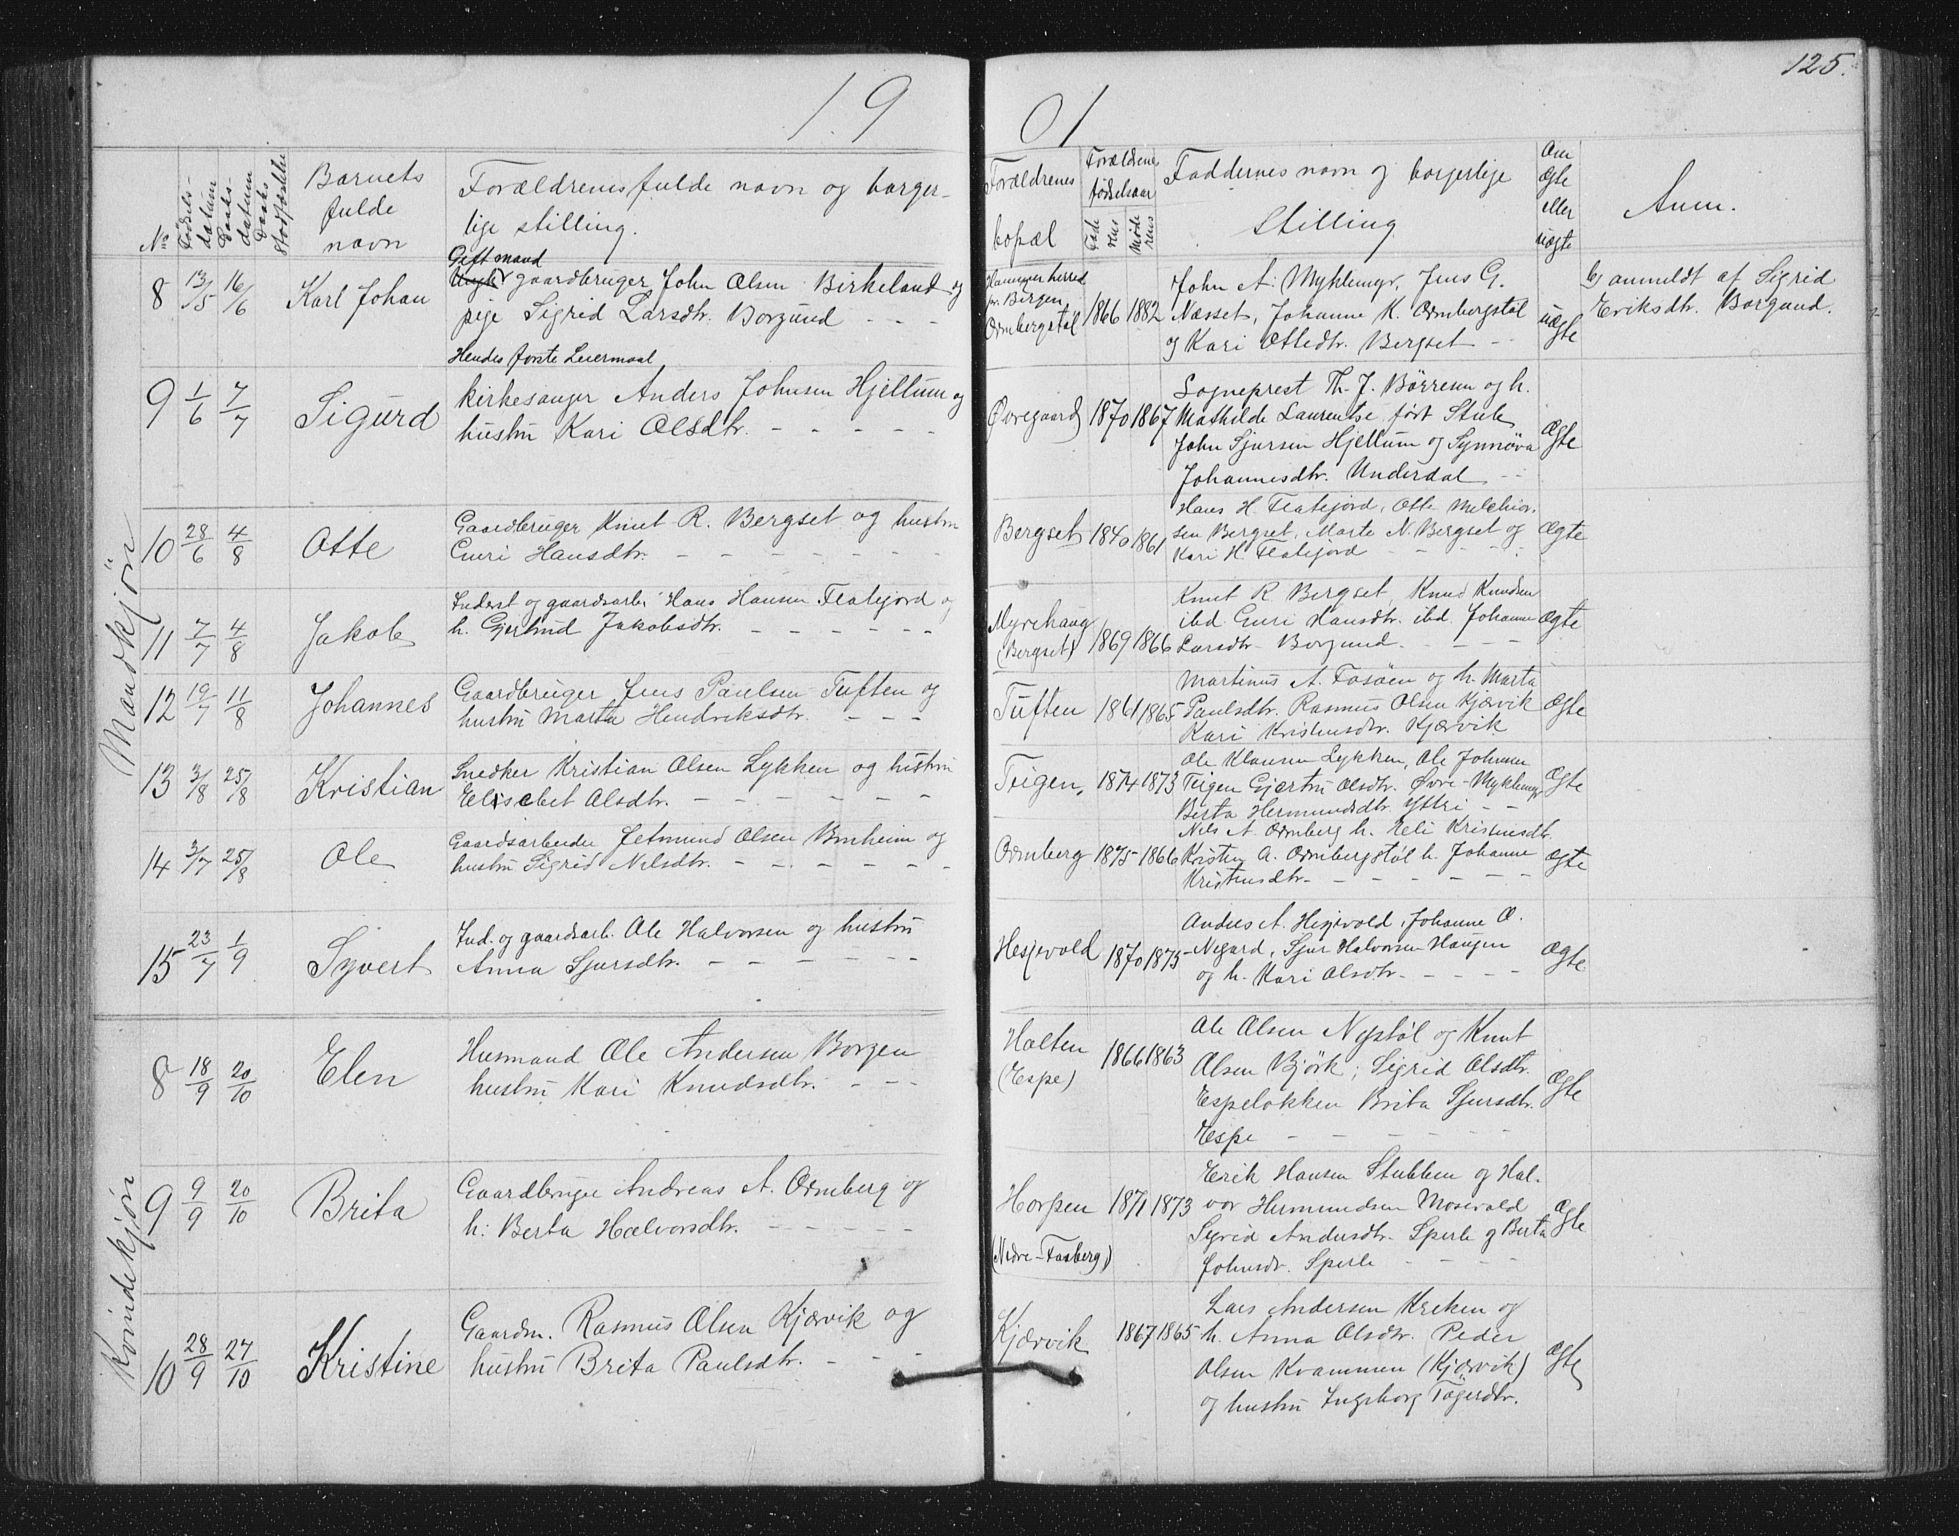 125.
19 01
No Fødsels-datum Daabs-datum Daabs Stadfæstelse
Barnets fulde navn
Forældrenes fulde navn og borgerlige stilling.
Forældrenes bopæl
Forældrenes fødselsaar
Fade rens
Mode rens
Faddernes navn og borgerlige Stilling
Om ægte eller uægte
Anm.
Mandkjøn
8 13/5 16/6 Karl Johan
Gift mand
gaardbruger John Olsen Birkeland og
pige Sigrid Larsdtr. Borgund - - -
Hendes første Leiermaal
Hammer herred
pr. Bergen
Ormbergstøl
1866 1882
John A. Myklemyr, Jens G.
Næsset, Johanne K. Ormbergstøl
og Kari Ottedtr. Bergset - -
uægte
b) anmeldt af Sigrid
Eriksdtr. Borgund.
9 1/6 7/7 Sigurd
Kirkesanger Anders Johnsen Hjellum og
hustru Kari Olsdtr. - - - - -
Øvregaard 1870 1867
Sogneprest Th. J. Børresen og h.
Mathilde Laurentse, født Stub
John Sjursen Hjellum og Synnøva
Johannesdtr. Underdal - -
Ægte
10 28/6 4/8 Otte
Gaardbruger Knut R. Bergset og hustru
Guri Hansdtr. - - - - - -
Bergset 1840 1861
Hans H. Flatejord, Otte Melchior-
sen Bergset, Marte N. Bergset og
Kari H. Flatejord - - - -
Ægte
11 7/7 4/8 Jakob
Inderst og gaardsarb. Hans Hansen Flatejord og
h. Gjertrud Jakobsdtr. - - - - - -
Myrehaug
(Bergset) 1869 1866
Knut R Bergset, Knud Knudsen
ibd. Guri Hansdtr. ibd. Johanne
Larsdtr Borgund. - - -
Ægte
12 19/7 11/8 Johannes
Gaardbruger Jens Paulsen Tuften og
hustru Marta Hendriksdtr. - - -
Tuften 1861 1865
Martinus A. Fosøen og h. Marta
Paulsdtr. Rasmus Olsen Kjærvik
Kari Kristensdtr. Kjærvik
Ægte
13 3/8 25/8 Kristian
Snedker Kristian Olsen Lykken og hustru
Elisabet Olsdtr. - - - - - -
Teigen, 1874 1873
Ole Klausen Lykken, Ole Johnsen
Teigen Gjertru Olsdtr. Øvre-Myklemyr
Berta Hermundsdtr Ystri - -
Ægte
14 3/7 25/8 Ole
Gaardsarbeider Jetmund Olsen Bonheim og
hustru Sigrid Nilsdtr. - - - - - -
Ormberg 1875 1866
Nils A. Ormberg h. Eli Kristensdtr.
Kristen A. Ormbergstøl h. Johanne
Kristensdtr. - - - - - -
Ægte
15 23/7 1/9 Syvert
Ind. og gaardsarb. Ole Halvorsen og hustru
Anna Sjursdtr. - - - - - -
Hesjevold 1870 1875
Anders A. Hesjevold, Johanne O.
Negard, Sjur Halvorsen Haugen
og h. Kari Olsdtr. - - - -
Ægte
Kvindekjøn
8 18/9 20/10 Elen
Husmand Ole Andersen Borgen
hustru Kari Knudsdtr. - - -
Holten
(Espe) 1866 1863
Ole Olsen Nystøl og Knut
Olsen Bjørk, Sigrid Olsdtr.
Espeløkken Brita Sjursdtr.
Espe - - - - -
Ægte
9 9/9 20/10 Brita
Gaardbruger Andreas A. Ormberg og
h: Berta Halvorsdtr. - - - - -
Horpen
(Nedre-Fosberg) 1871 1873
Erik Hansen Stubben og Hal-
vor Hermundsen Mosevold
Sigrid Andersdtr. Sperle og Berta
Johnsdr. Sperle - - - -
Ægte
10 28/9 27/10 Kristine
Gaardm. Rasmus Olsen Kjærvik og
hustru Brita Paulsdtr. - - - -
Kjærvik 1867 1865
Lars Andersen Kreken og
h. Anna Olsdtr. Peder
Olsen Kvammen (Kjærvik)
og hustru Ingeborg Tøgerdtr.
Ægte